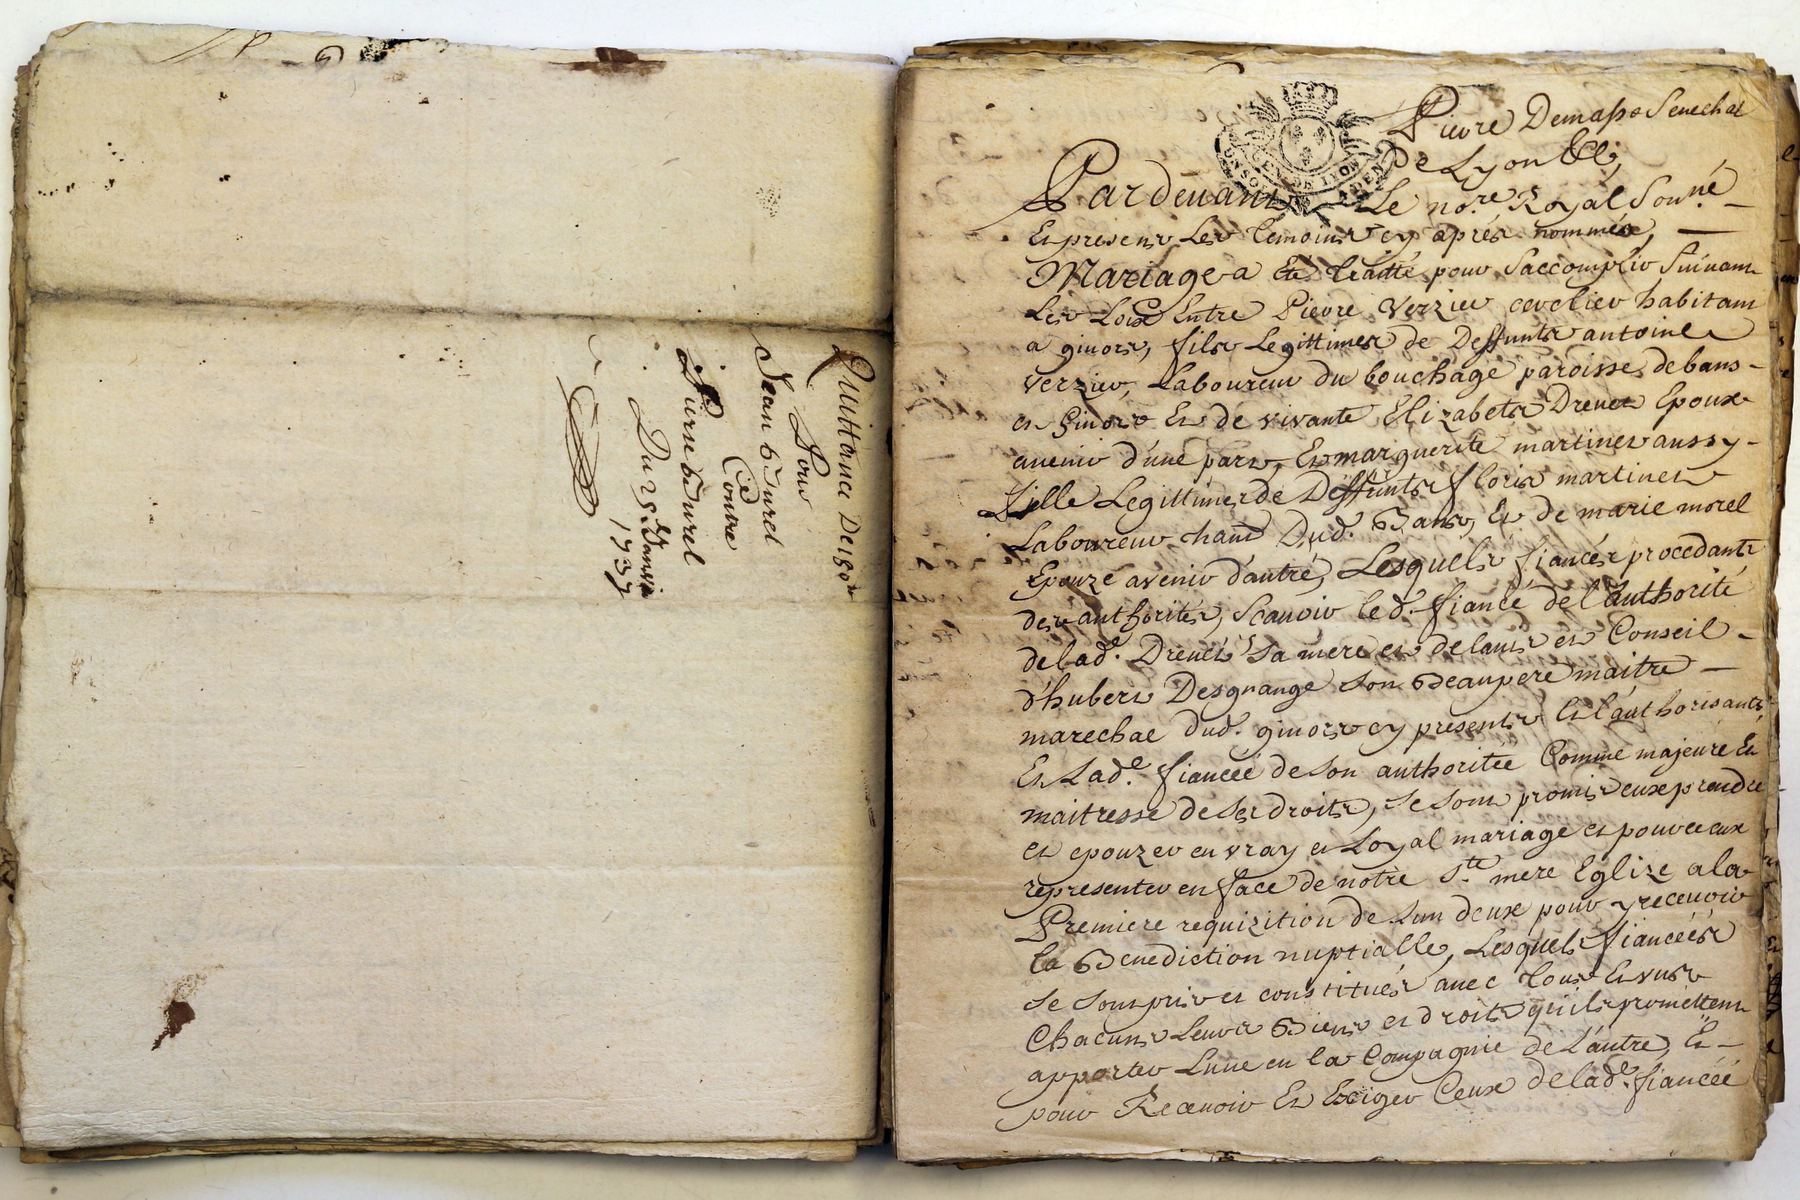 Quittance De 150#
Pour
Jean Burel
Contre
Pierre Burel
Du 25 Janvier
1737
Pierre Demasso Senechal
De Lyon &&
Pardevant Le no.re Royal Sous.né
Et presents Les temoins cy aprés nommés,
Mariage a Eté traitté pour Saccomplir Suivant
Les Loix Entre Pierre Verzier cerclier habitant
a givors, fils Legittimes de Deffunts antoine
verzier, Laboureur du bouchage paroisse de bans
et Givors Et de vivante Elizabets Drevet Epoux
avenir d'une part, Et marguerite martinet aussy
fille Legittimes de Deffunts floris martinet
Laboureur Dud. Bans, Et de marie morel
Epouze avenir d'autré, Lesquels fiancés procedants
des authorités, Scavoir led. fiancé de l'authorité
delad. Drevet Sa mere et de lavis et Conseil
d'hubert Desgrange son Beaupere maitre
marechal dud. givors cy presents Et l'authorisants
Et Lad.e fianceé de son authoritée Comme majeure Et
maitresse de Ses droits, se sont promis eux prendre
et epouzer en vray et Loyal mariage et pour ce eux
representer en face de notre S.te mere Eglize a la
Premiere requizition de Lun deux pour y recevoir
la Benediction nuptialle, Lesquels fiancéés
se sont pris et constitués avec tous Et uns
Chacuns Leurs Biens et droits qu'ils promettent
apporter Lune en la Compagnie de L'autre, Et
pour Recevoir Et Exiger Ceux delad.e fiancéé